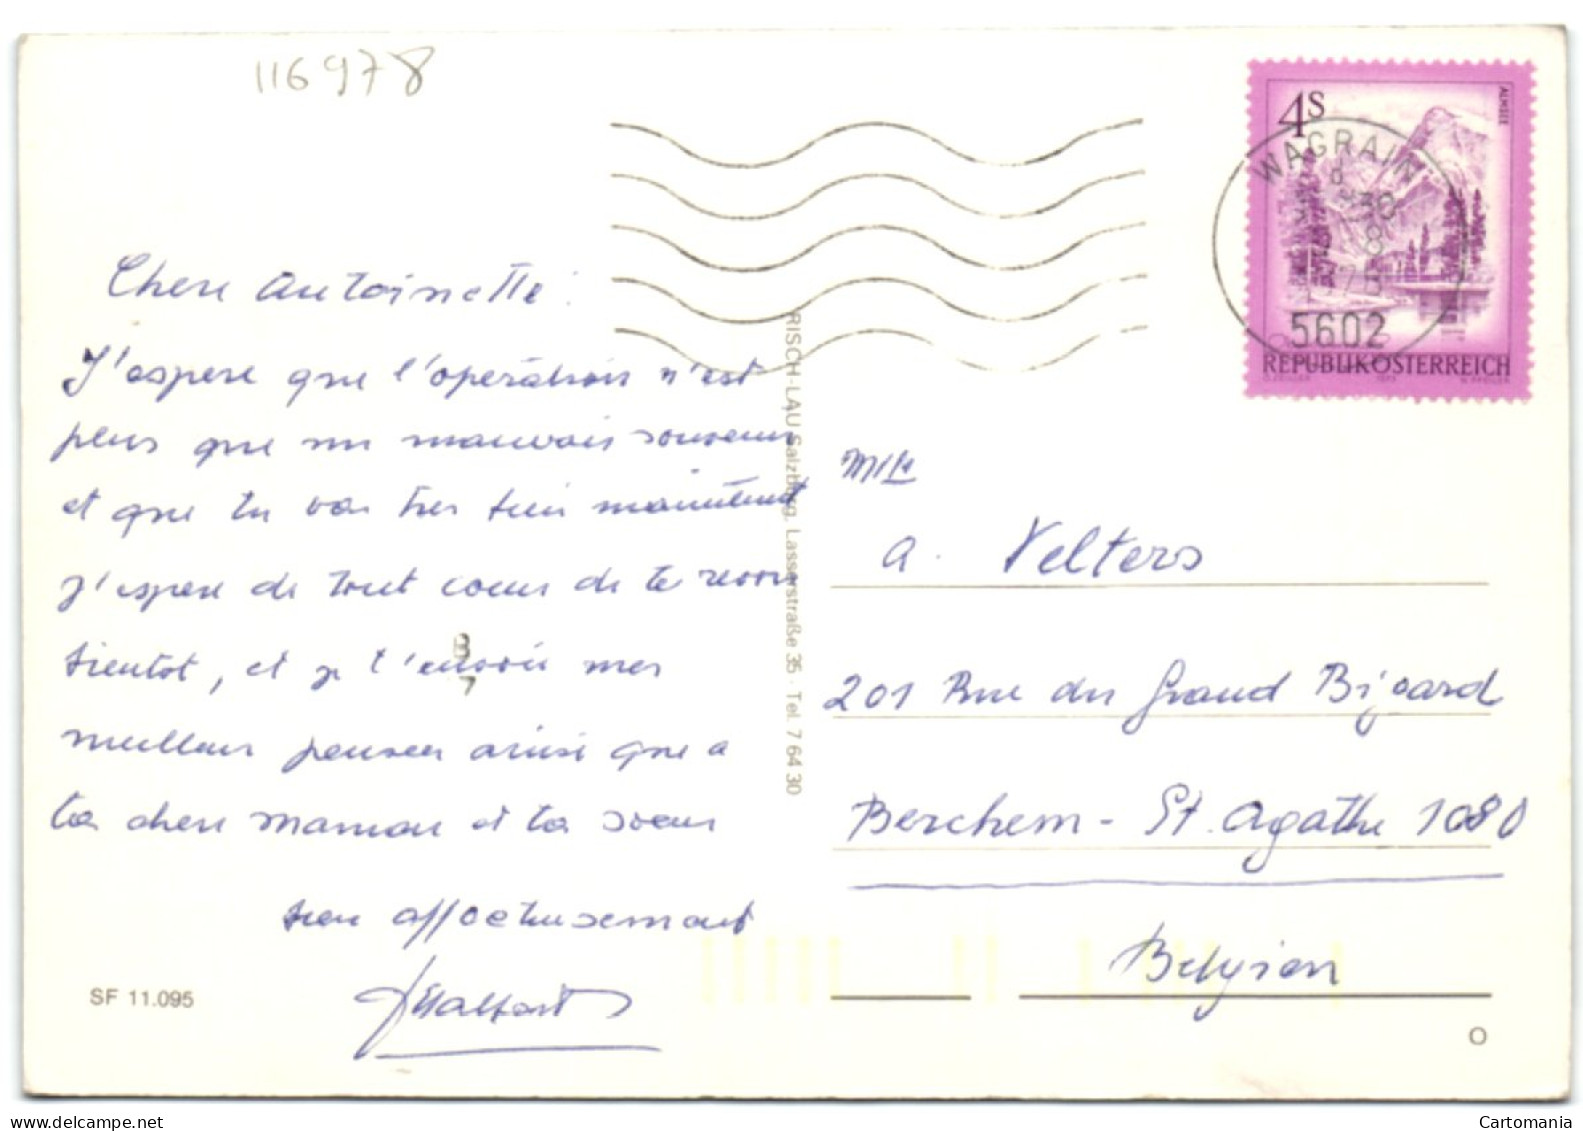 116978
4S
ALMSEE
WAGRAIN
5602
REPUBLIK ÖSTERREICH
Chere Antoinette :
J'espere que l'opération n'est
plus que un mauvais souvenir
et que tu vas tres bien maintenant
j'espere de tout coeur de te revoir
bientot, et je t'envoie mes
meilleurs pensees ainsi que a
ta chere maman et ta soeur
bien affectueusement
SF 11.095
RISCH-LAU Salzburg, Lasserstraße 35 · Tel. 7 64 30
Mlle
A. Velters
201 Rue du Grand Bigard
Berchem - St. Agathe 1080
Belgien
O
Cartomania